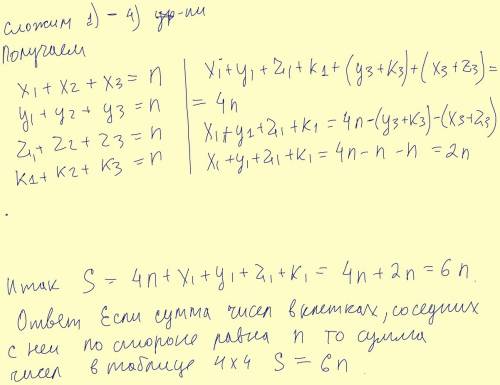 сложим 1) – 4) ур-ни
Получаем
x1 + x2 + x3 = n
y1 + y2 + y3 = n
z1 + z2 + z3 = n
k1 + k2 + k3 = n
x1 + y1 + z1 + k1 + (y3 + k3) + (x3 + z3) =
= 4n
x1 + y1 + z1 + k1 = 4n - (y3 + k3) - (x3 + z3)
x1 + y1 + z1 + k1 = 4n - n - n = 2n
Итак S = 4n + x1 + y1 + z1 + k1 = 4n + 2n = 6n.
Ответ Если сумма чисел в клетках, соседних
с ней по стороне равна n то сумма
чисел в таблице 4x4 S = 6n.